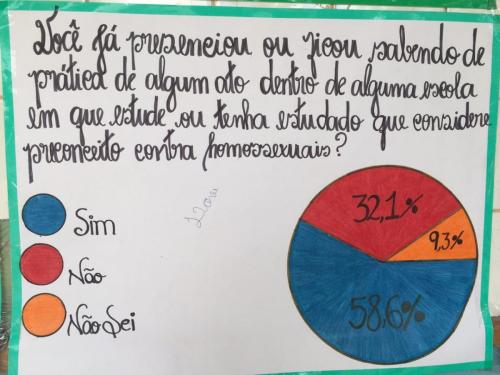 Você já presenciou ou ficou sabendo de
prática de algum ato dentro de alguma escola
em que estude ou tenha estudado que considere
preconceito contra homossexuais?
Sim
Não
Não Sei
32,1%
9,3%
58,6%